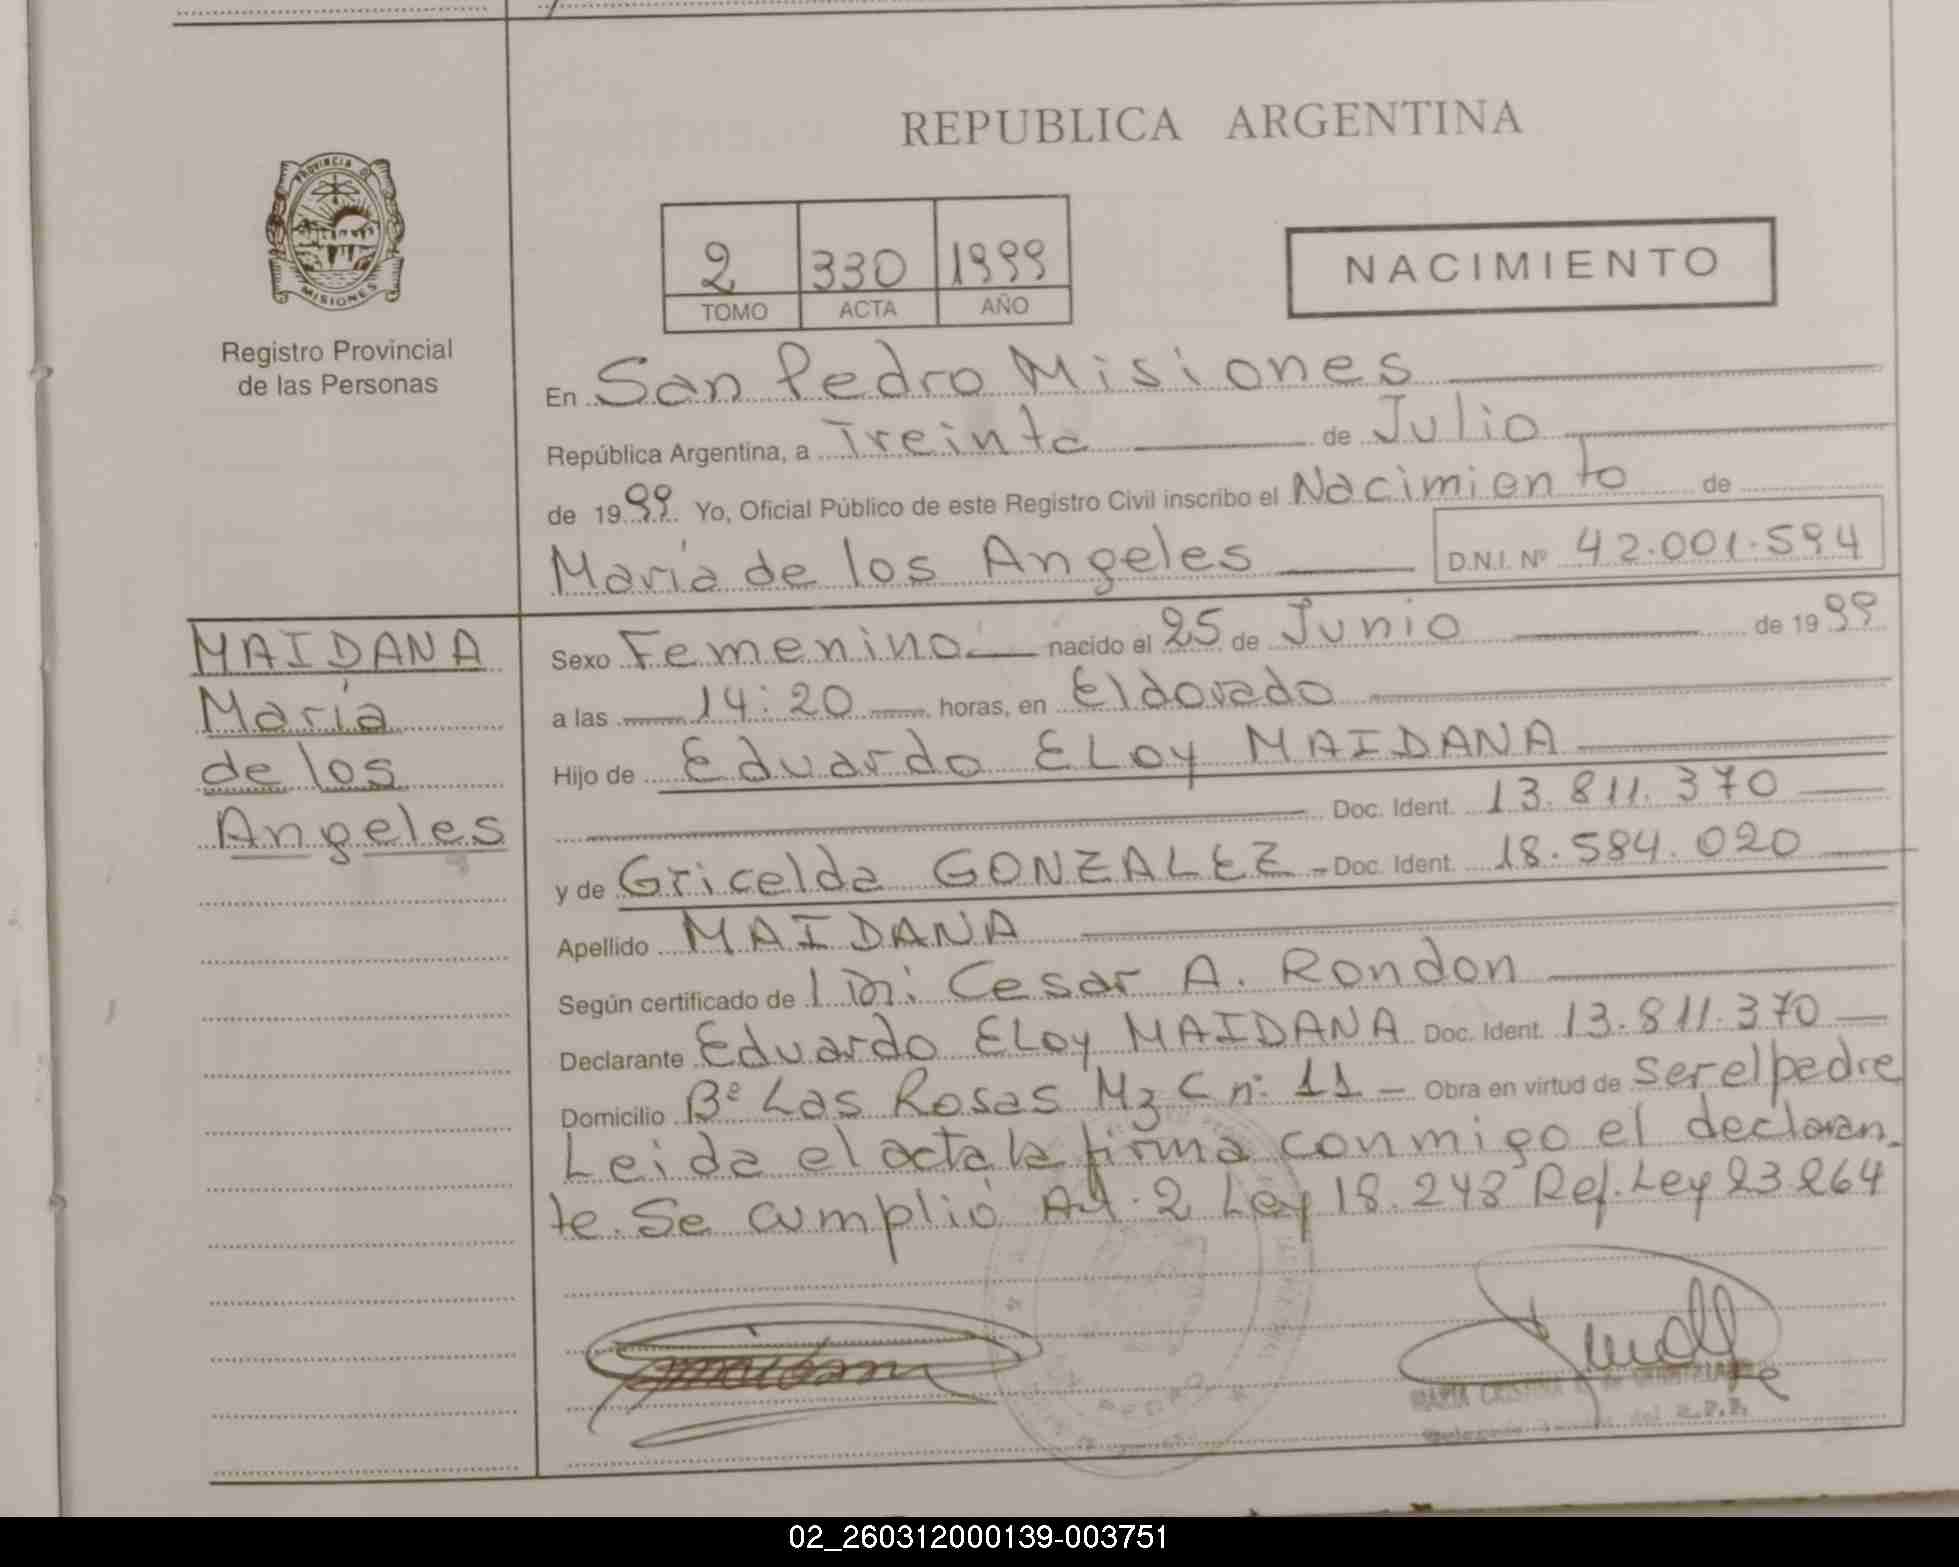 REPUBLICA ARGENTINA
PROVINCIA DE
MISIONES
Registro Provincial
de las Personas
2 330 1999
TOMO ACTA AÑO
NACIMIENTO
En San Pedro Misiones
República Argentina, a Treinta de Julio
de 1999 Yo, Oficial Público de este Registro Civil inscribo el Nacimiento de
María de los Angeles D.N.I. Nº 42.001.594
MAIDANA
María
de los
Angeles
Sexo Femenino nacido el 25 de Junio de 1999
a las 14:20 horas, en Eldorado
Hijo de Eduardo ELoy MAIDANA
Doc. Ident. 13.811.370
y de Gricelda GONZALEZ - Doc. Ident. 18.584.020
Apellido MAIDANA
Según certificado de Cesar A. Rondon
Declarante Eduardo ELoy MAIDANA Doc. Ident. 13.811.370
Domicilio Bº Las Rosas Mz C nº 11 - Obra en virtud de ser el padre
Leida el acta la firma conmigo el declaran-
te. Se cumplió Art. 2 Ley 18.248 Ref. Ley 23264
MARIA CRISTINA
02_260312000139-003751